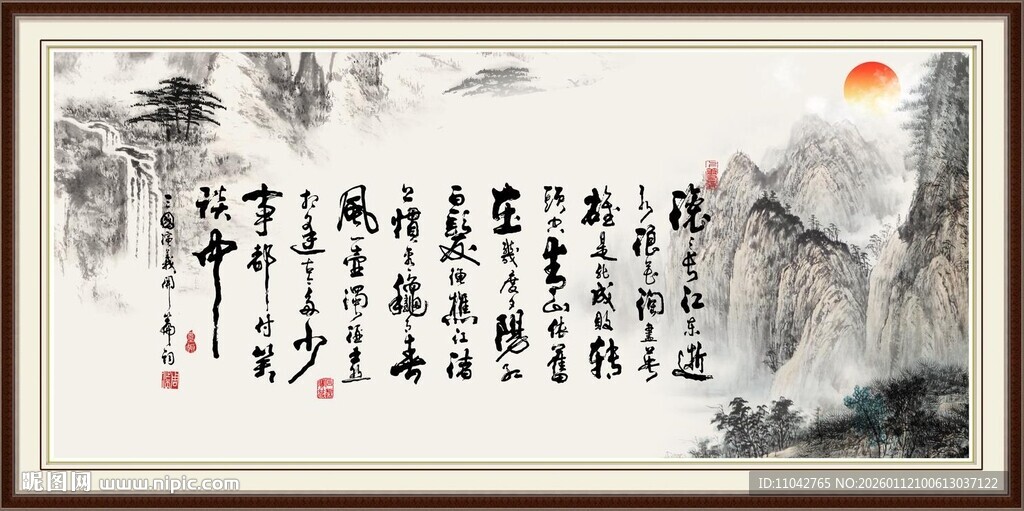 滚滚长江东逝
水浪花淘盡英
雄是非成敗转
頭空青山依舊
在幾度夕陽红
白髮渔樵江渚
上慣看秋月春
風一壺濁酒喜
相逢古今多少
事都付笑
談中
三國演義開篇词
昵图网 www.nipic.com
ID:11042765 NO:20260112100613037122